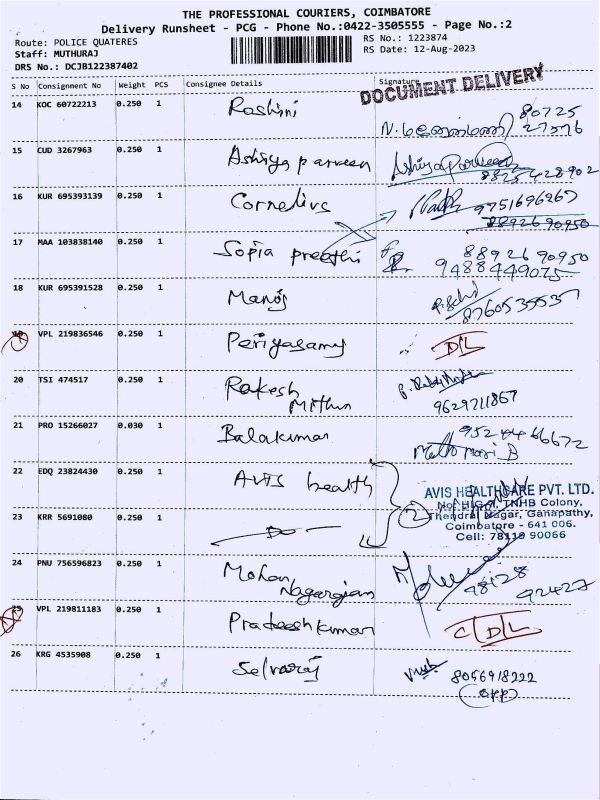 THE PROFESSIONAL COURIERS, COIMBATORE
Delivery Runsheet - PCG - Phone No.:0422-3505555 - Page No.:2
Route: POLICE QUATERES
RS No.: 1223874
Staff: MUTHURAJ
RS Date: 12-Aug-2023
DRS No.: DCJB122387402
S No Consignment No Weight PCS Consignee Details Signature
DOCUMENT DELIVERY
14 KOC 60722213 0.250 1 Roshini 80725
27576
15 CUD 3267963 0.250 1 Ashiya parveen Ashiyaparveen
8825428902
16 KUR 695393139 0.250 1 Cornelius 9751696267
8892690950
17 MAA 103838140 0.250 1 Sopia preethi 8892690950
9488449075
18 KUR 695391528 0.250 1 Manoj
8760535537
19 VPL 219836546 0.250 1 Periyasamy D/L
20 TSI 474517 0.250 1 Rakesh
Mithun 9629711867
21 PRO 15266027 0.030 1 Balakumar 9524466672
22 EDQ 23824430 0.250 1 AVIS health
AVIS HEALTHCARE PVT. LTD.
No: HIG-I, TNHB Colony,
23 KRR 5691080 0.250 1 Do 2 Thendral Nagar, Ganapathy,
Coimbatore - 641 006.
Cell: 78119 90066
24 PNU 756596823 0.250 1 Mohan
Nagarajan 98128
92427
25 VPL 219811183 0.250 1 Pradeesh kumar C/D/L
26 KRG 4535908 0.250 1 Selvaraj 8056918222
(OPP)